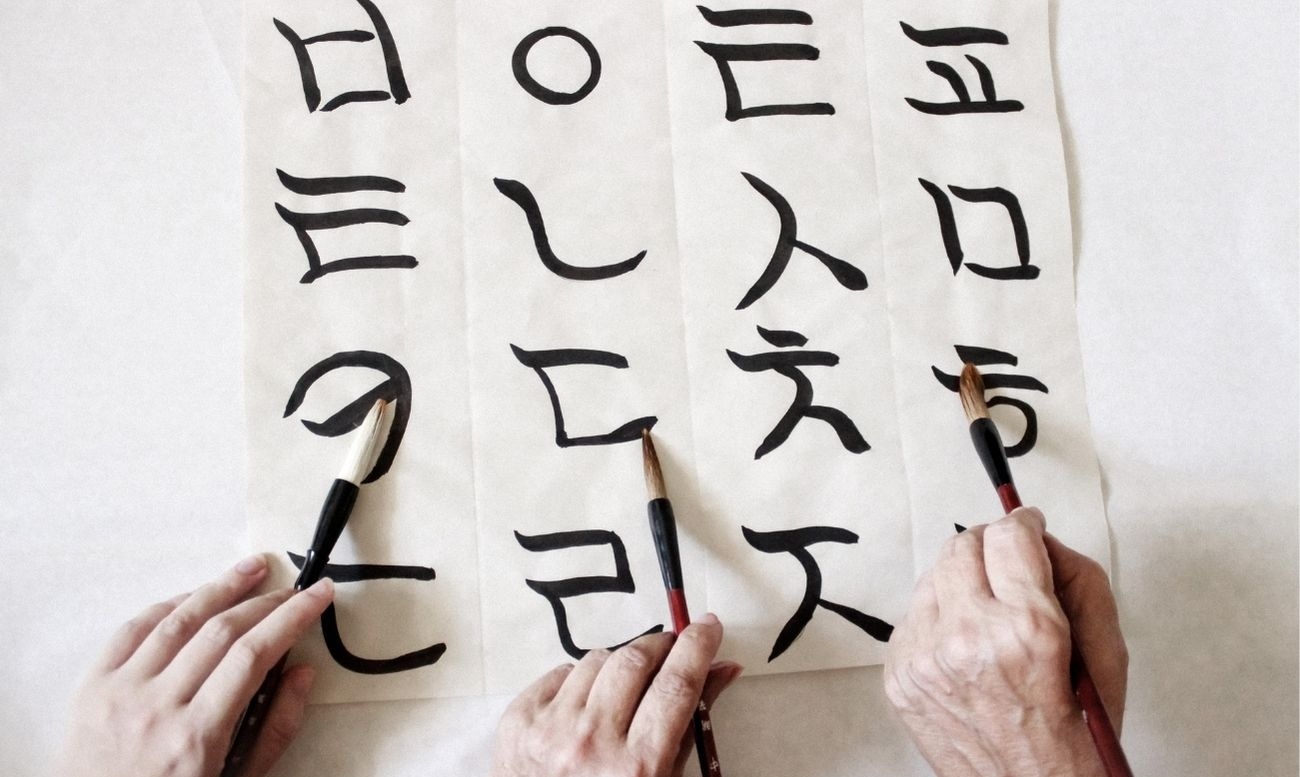 ㅇ ㅌ ㅍ
ㅌ ㄴ ㅅ ㅁ
ㄷ ㅊ ㅎ
ㄹ ㅈ